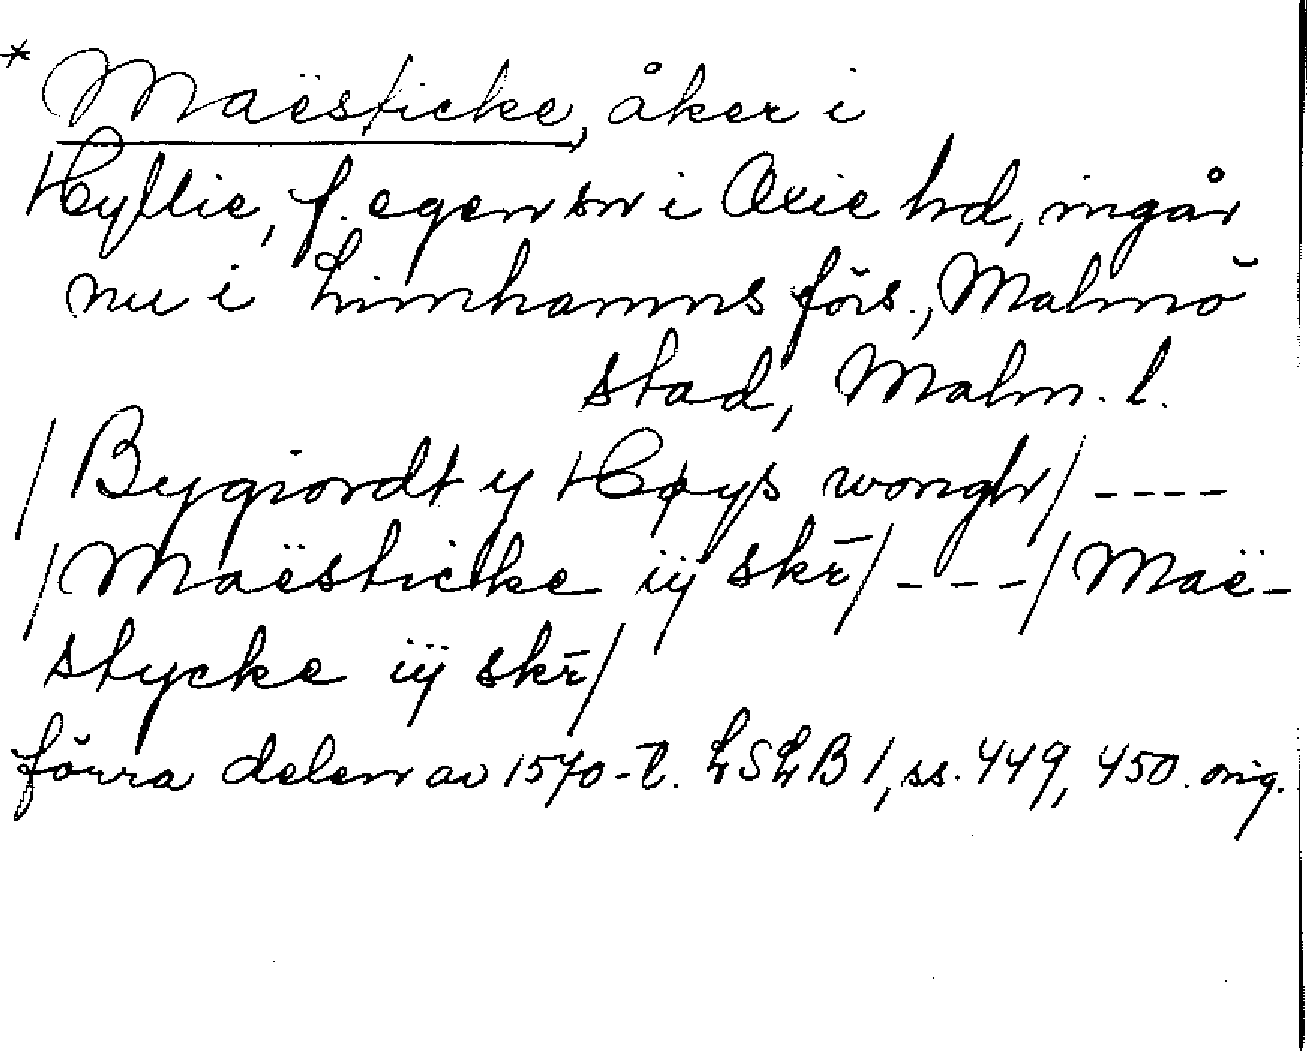 * Maësticke, åker i
Hyllie, f. egen sn i Oxie hd, ingår
nu i Limhamns förs., Malmö
stad, Malm. l.
/Bygiordt y Høys wongh/ ----
/Maësticke iÿ skr̄/ ---/Maë-
stycke iÿ skr̄/
förra delen av 1570-t. LSLB 1, ss. 449, 450. orig.